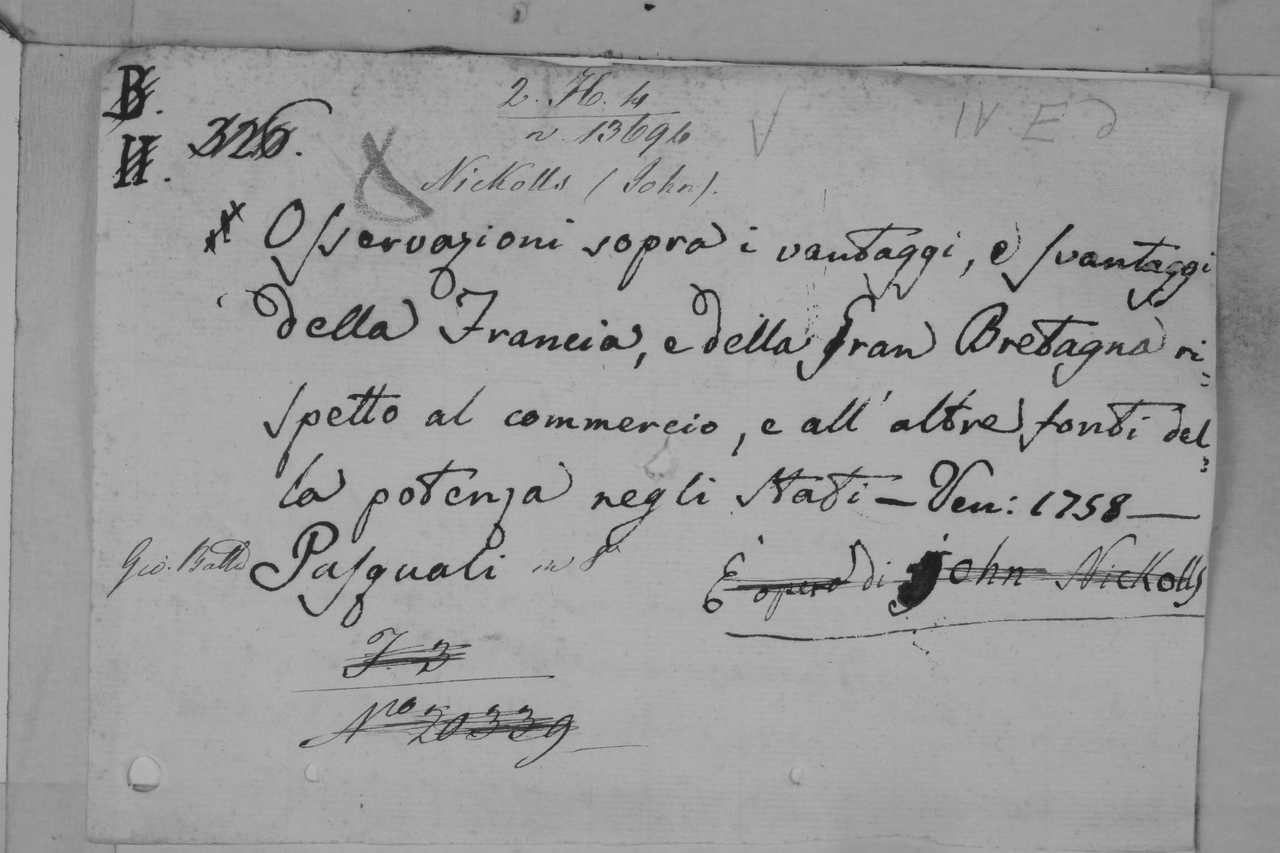 B. 2. H. 4
H. 326. n. 13696 V IV E d
Nickolls (John).
Osservazioni sopra i vantaggi, e svantaggi
della Francia, e della Gran Bretagna ri=
spetto al commercio, e all' altre fonti del=
la potenza negli Stati – Ven: 1758 —
Gio. Batta Pasquali in 8° È opera di John Nickolls
J. 3
Nro 20339